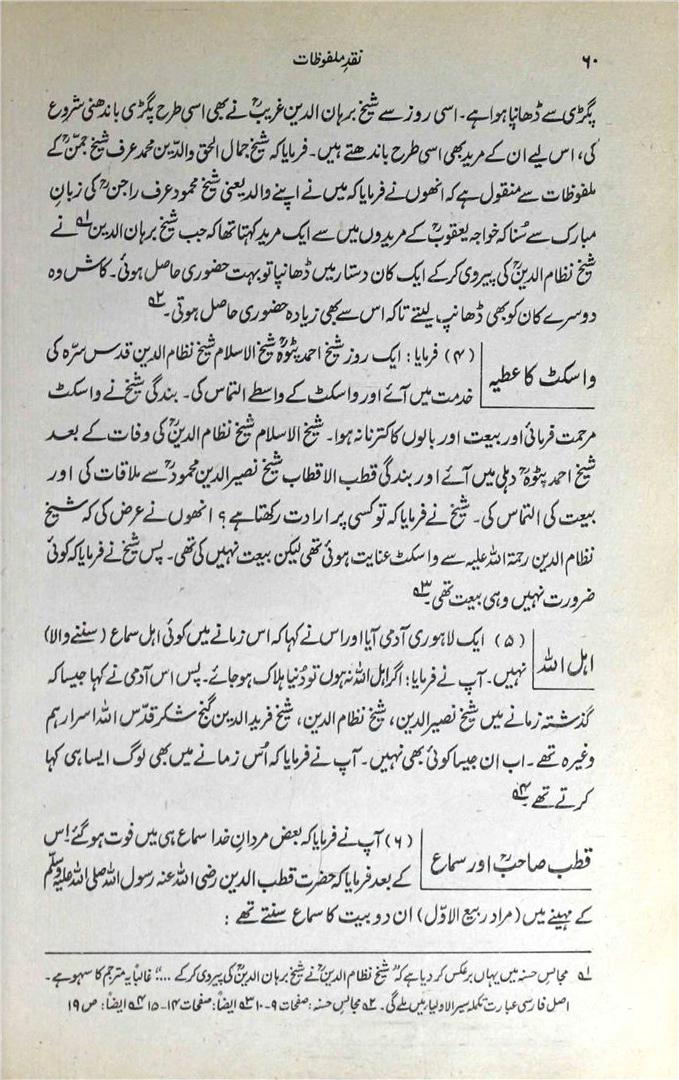 ۶۰
نقدِ ملفوظات
پگڑی سے ڈھانپا ہوا ہے۔ اسی روز سے شیخ برہان الدین غریبؒ نے بھی اسی طرح پگڑی باندھنی شروع
کی، اس لیے ان کے مرید بھی اسی طرح باندھتے ہیں۔ فرمایا کہ شیخ جمال الحق والدّین محمد عرف شیخ جمنؒ کے
ملفوظات سے منقول ہے کہ انھوں نے فرمایا کہ میں نے اپنے والد یعنی شیخ محمود عرف راجنؒ کی زبانِ
مبارک سے سُنا کہ خواجہ یعقوبؒ کے مریدوں میں سے ایک مرید کہتا تھا کہ جب شیخ برہان الدینؒ ۱؎ نے
شیخ نظام الدینؒ کی پیروی کرکے ایک کان دستار میں ڈھانپا تو بہت حضوری حاصل ہوئی۔ کاش وہ
دوسرے کان کو بھی ڈھانپ لیتے تاکہ اس سے بھی زیادہ حضوری حاصل ہوتی۔ ۲؎
واسکٹ کا عطیہ
(۴) فرمایا: ایک روز شیخ احمد پٹوہؒ شیخ الاسلام شیخ نظام الدین قدس سرّہ کی
خدمت میں آئے اور واسکٹ کے واسطے التماس کی۔ بندگی شیخؒ نے واسکٹ
مرحمت فرمائی اور بیعت اور بالوں کا کترنا نہ ہوا۔ شیخ الاسلام شیخ نظام الدینؒ کی وفات کے بعد
شیخ احمد پٹوہؒ دہلی میں آئے اور بندگی قطب الاقطاب شیخ نصیر الدین محمودؒ سے ملاقات کی اور
بیعت کی التماس کی۔ شیخؒ نے فرمایا کہ تو کسی پر ارادت رکھتا ہے؟ انھوں نے عرض کی کہ شیخ
نظام الدین رحمۃ اللہ علیہ سے واسکٹ عنایت ہوئی تھی لیکن بیعت نہیں کی تھی۔ پس شیخؒ نے فرمایا کہ کوئی
ضرورت نہیں وہی بیعت تھی۔ ۳؎
اہل اللہ
(۵) ایک لاہوری آدمی آیا اور اس نے کہا کہ اس زمانے میں کوئی اہل سماع (سننے والا)
نہیں۔ آپ نے فرمایا: اگر اہل اللہ نہ ہوں تو دُنیا ہلاک ہو جائے۔ پس اس آدمی نے کہا جیسا کہ
گذشتہ زمانے میں شیخ نصیر الدین، شیخ نظام الدین، شیخ فرید الدین گنج شکر قدّس اللہ اسرارہم
وغیرہ تھے۔ اب ان جیسا کوئی بھی نہیں۔ آپ نے فرمایا کہ اُس زمانے میں بھی لوگ ایسا ہی کہا
کرتے تھے۔ ۴؎
قطب صاحبؒ اور سماع
(۶) آپ نے فرمایا کہ بعض مردانِ خدا سماع ہی میں فوت ہو گئے۔ اس
کے بعد فرمایا کہ حضرت قطب الدین رضی اللہ عنہ رسول اللہ صلی اللہ علیہ وسلم
کے مہینے میں (مراد ربیع الاوّل) ان دو بیت کا سماع سنتے تھے:
۱؎ مجالسِ حسنہ میں یہاں برعکس کر دیا ہے کہ "شیخ نظام الدینؒ نے شیخ برہان الدینؒ کی پیروی کرکے ...." غالباً یہ مترجم کا سہو ہے۔
اصل فارسی عبارت تکملہ سیر الاولیا میں ملے گی۔ ۲؎ مجالسِ حسنہ: صفحات ۹-۱۰ ۳؎ ایضاً: صفحات ۱۴-۱۵ ۴؎ ایضاً: ص ۱۹